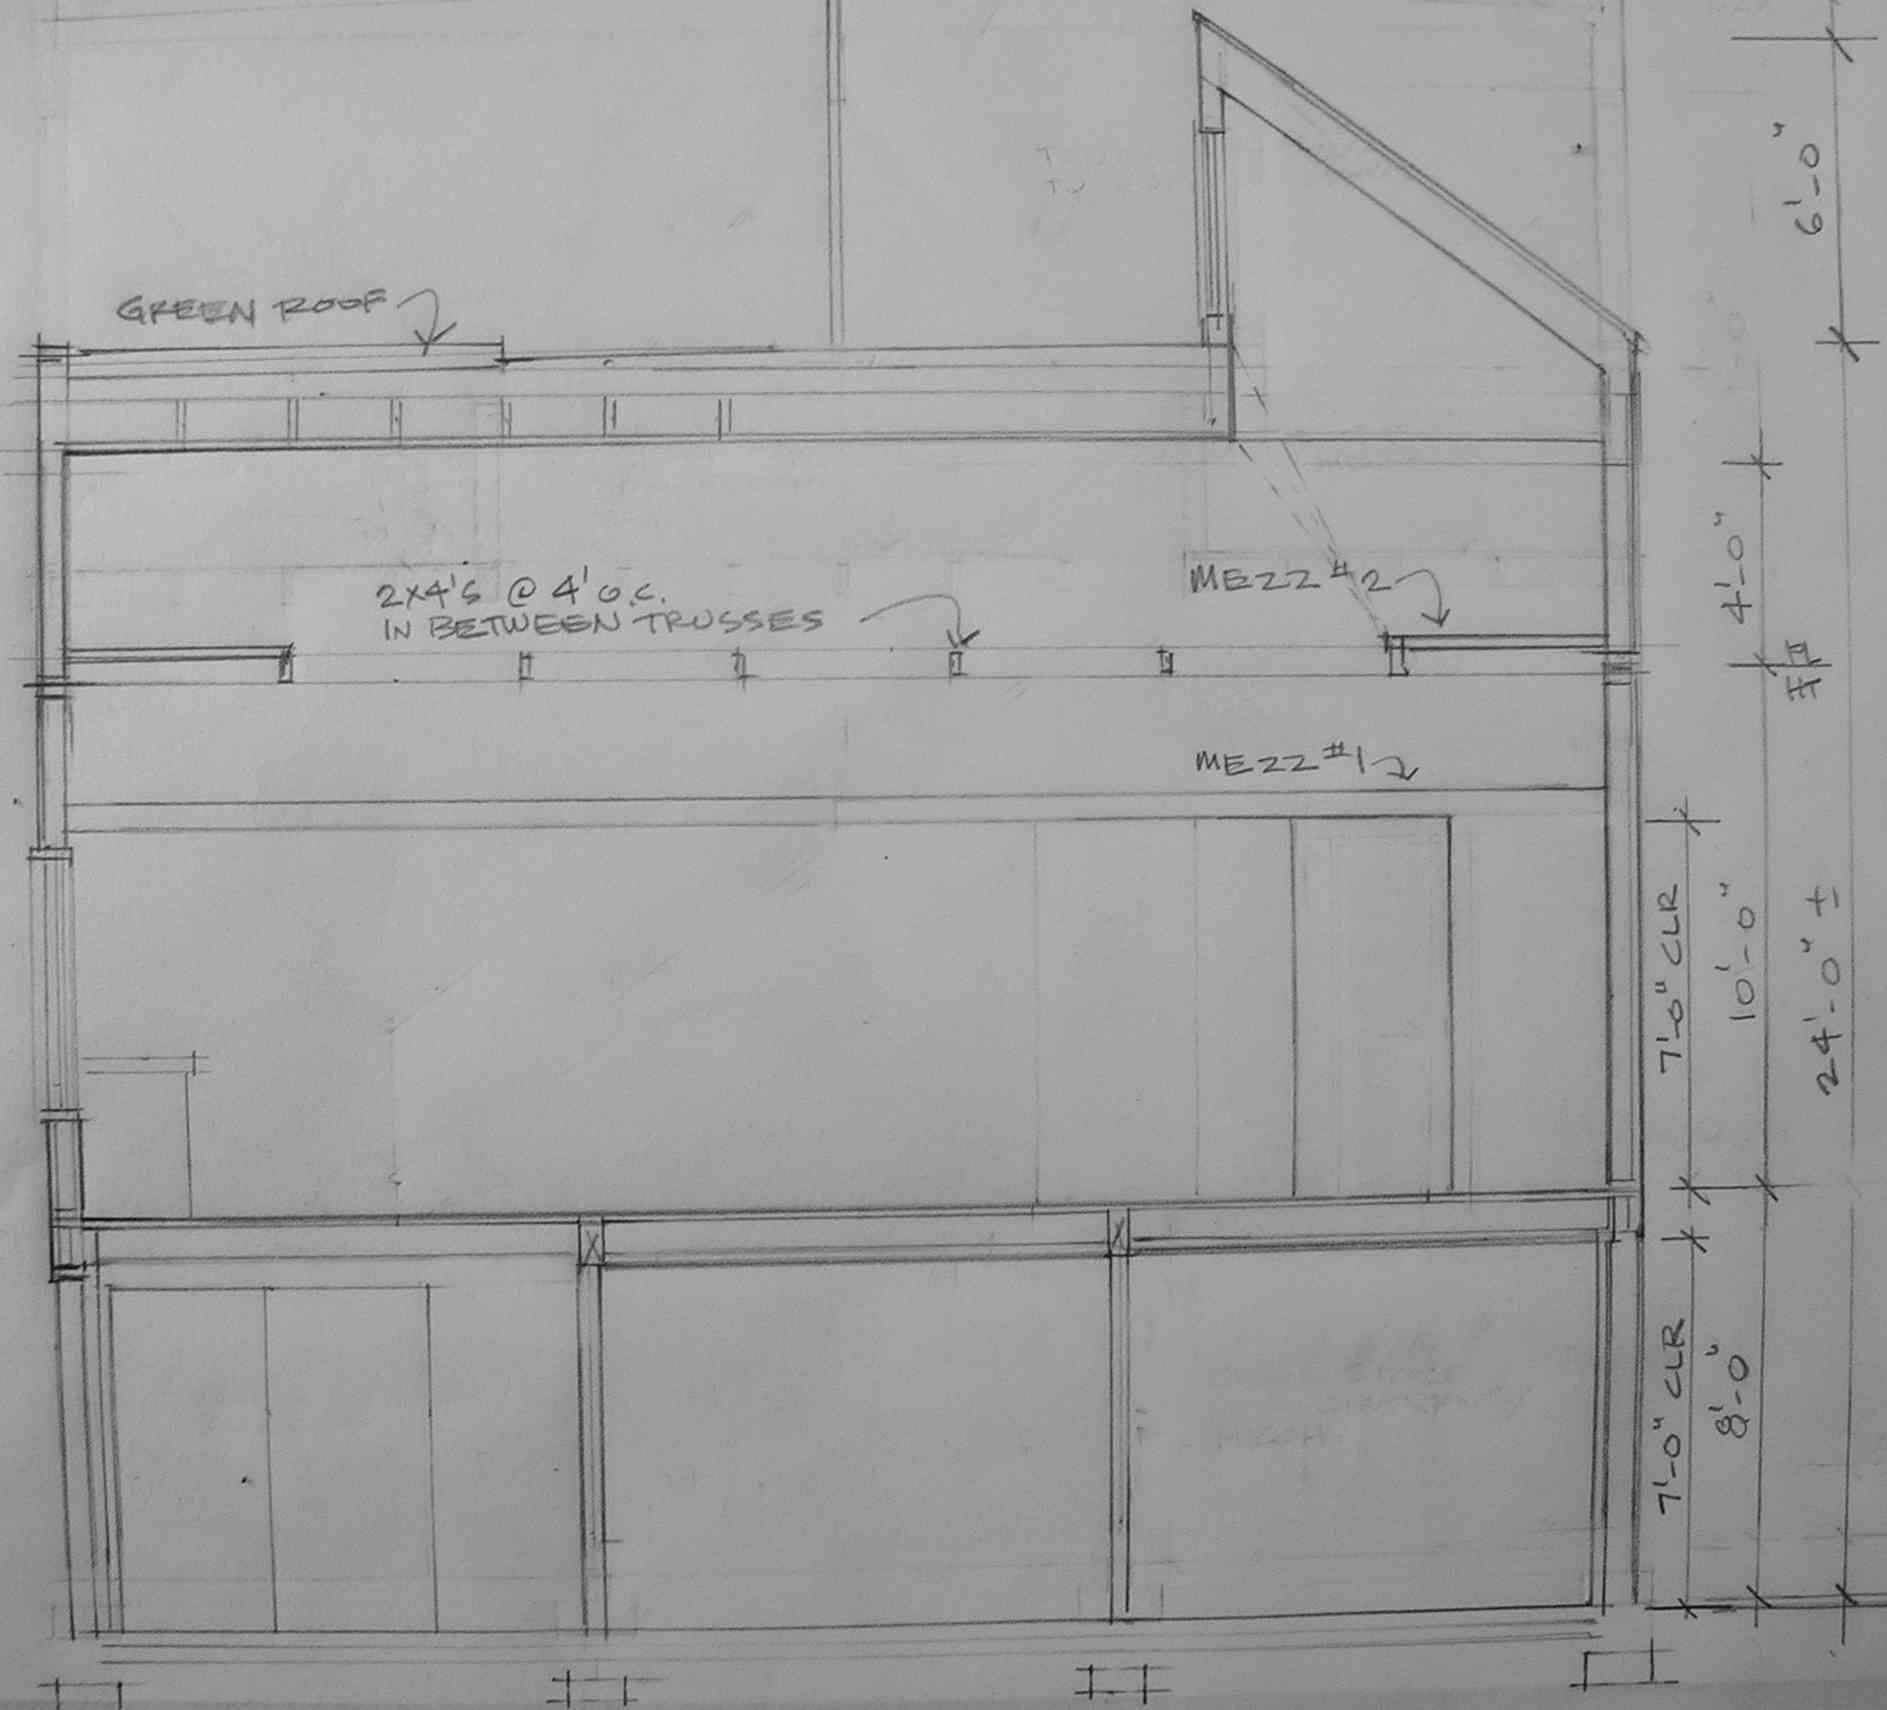 6'-0"
GREEN ROOF
4'-0"
2X4'S @ 4' O.C.
IN BETWEEN TRUSSES
MEZZ #2
MEZZ #1
7'-0" CLR
10'-0"
24'-0" ±
7'-0" CLR
8'-0"